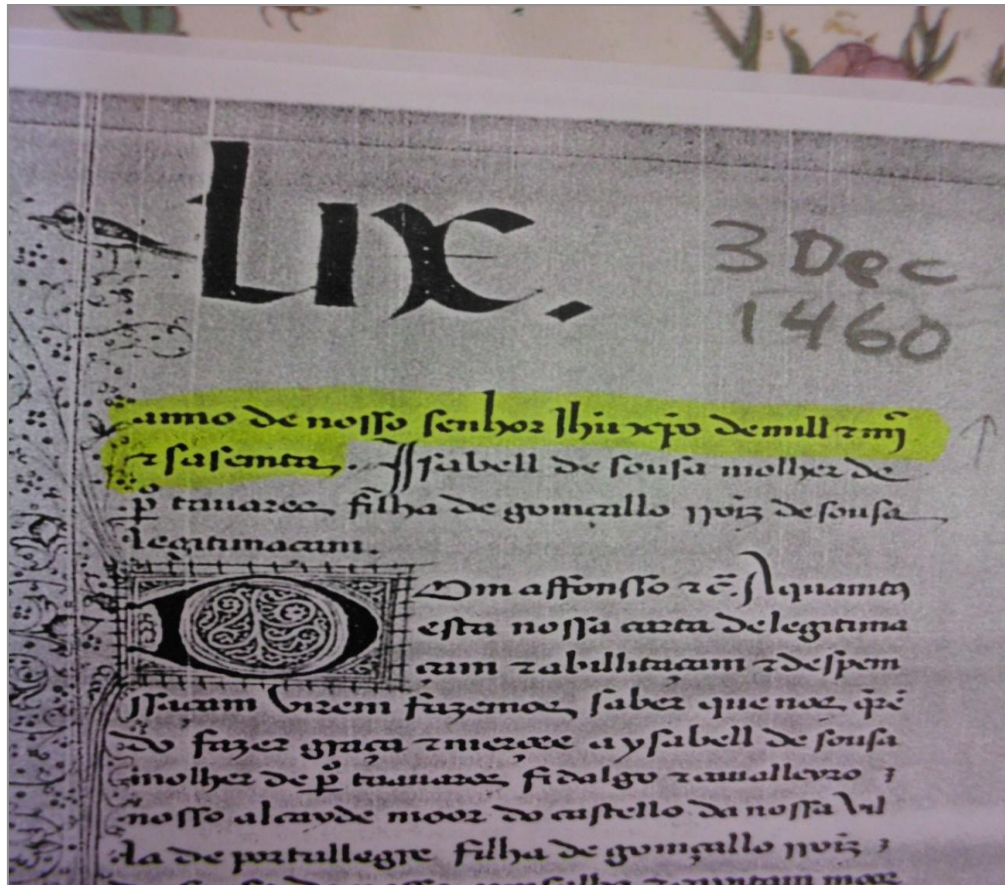 Lix.
3 Dec
1460
anno de nosso senhor Jhũ xp̃o de mill ⁊ iiijᶜ
⁊ sasemta. Issabell de sousa molher de
p.º tauares filha de gomçallo rroiz de sousa
legitimaçam.
Dom affonsso ⁊ c̃. A quamtos
esta nossa carta de legitima
çam ⁊ abillitaçam ⁊ despem
ssaçam virem fazemos saber que nos q̃rẽ
do fazer graça ⁊ merçee a ysabell de sousa
molher de p.º tauares fidalgo ⁊ caualleyro
nosso alcayde moor do castello da nossa vil
la de portallegre filha de gomçallo rroiz